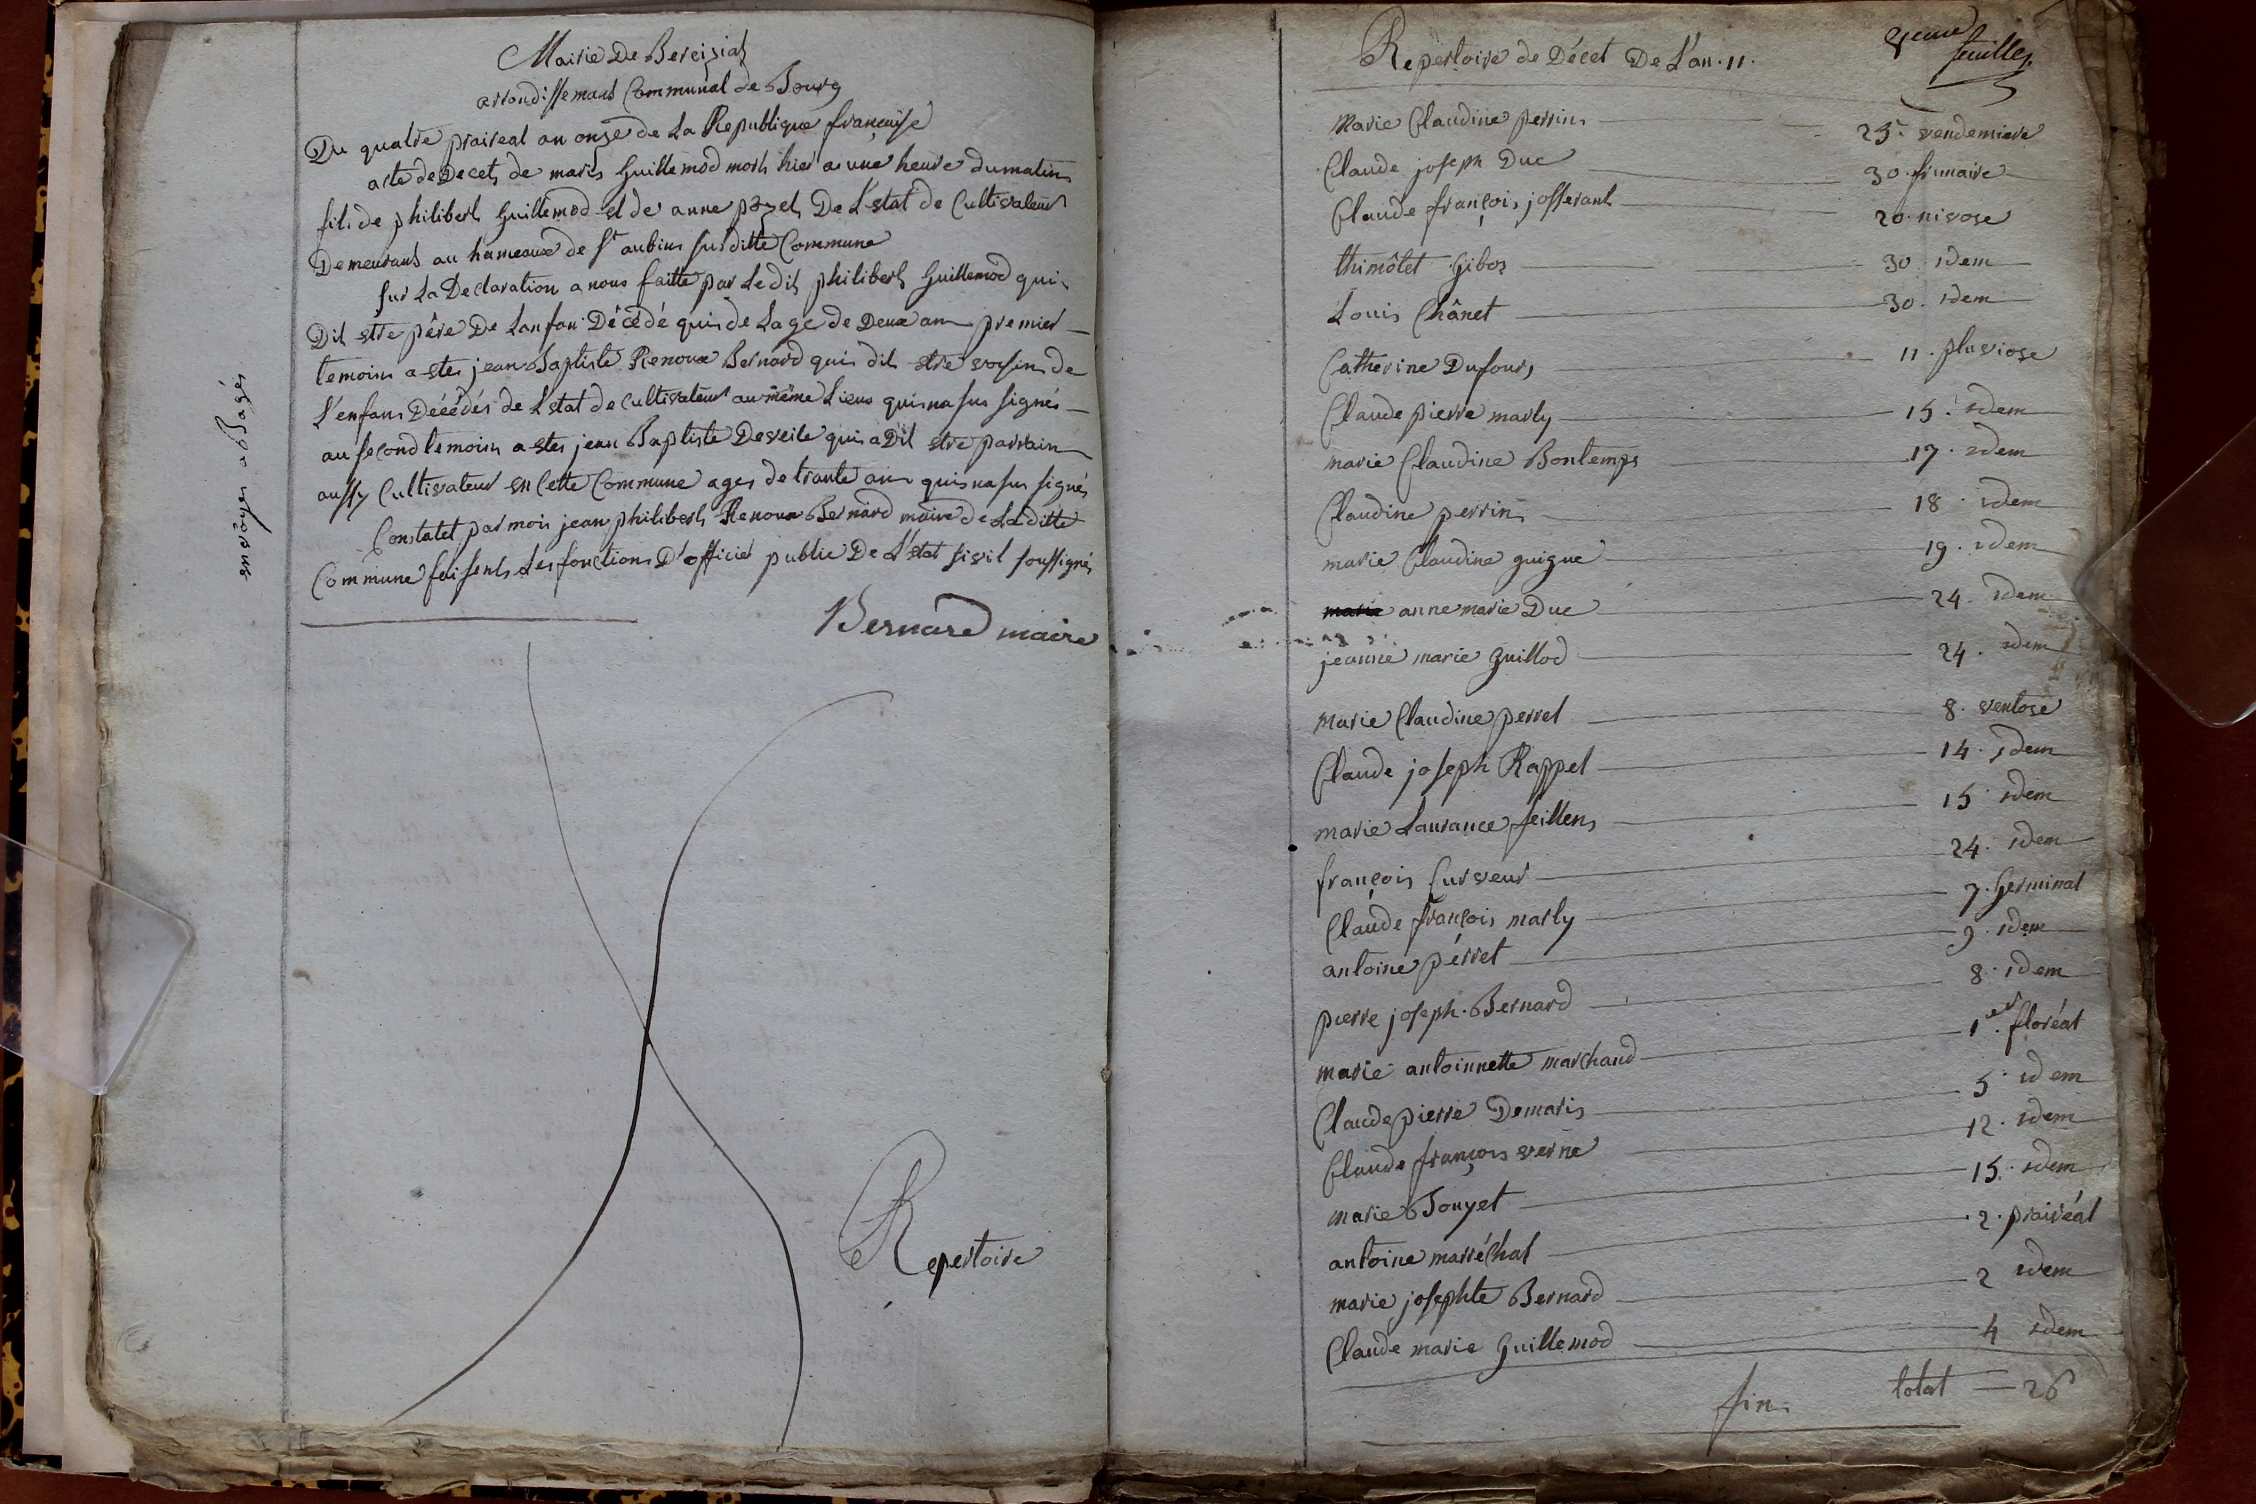 Mairie De Bereisiat
arrondissemant Communal de Bourg
Du quatre praireal an onze de La Republique française
acte de Decet de marie Guillemod mort hier a une heure du matin
fils de philibert Guillemod et de anne pozet De L'estat de Cultivateur
Demeurant au hameaux de St aubin susditte Commune
sur La Declaration a nous faitte par Ledit philibert Guillemod qui
Dit etre pêre De Lanfan Décédé qui de Lage de Deux an premier
temoins a ete jean Baptiste Renoux Bernard qui dit etre voisin de
L'enfant Décédés de L'etat de cultivateur au même Lieux qui na sus signés
au second temoins a ete jean Baptiste Deveile qui a Dit etre parrain
aussy Cultivateur en Cette Commune ages de trante ans qui na sus signés
Constatet par moi jean philibert Renoux Bernard maire de La ditte
Commune feisent Les fonctions D'officier public De L'état sivil soussignés
Bernard maire
Repertoire
Repertoire de Décet De L'an .11.
feuillet
Marie Claudine perrin 25. vendemiere
Claude joseph Duc 30. frimaire
Claude françois josserant 20. nivose
thimôtet Giboz 30. idem
Louis Chânet 30. idem
Catherine Dufour 11. pluviose
Claude pierre marly 15. idem
marie Claudine Bontemps 17. idem
Claudine perrin 18. idem
marie Claudine guigue 19. idem
marie anne marie Duc 24. idem
jeanne marie guillod 24. idem
Marie Claudine perret 8. ventose
Claude joseph Rappet 14. idem
marie Laurance feillens 15 idem
françois Curveur 24. idem
Claude françois marly 7. Germinal
antoine pérret 9. idem
pierre joseph Bernard 8. idem
marie antoinnette marchand 1er. floréal
Claude pierre Demaris 5. idem
Claude françois verne 12. idem
marie Bouyet 15. idem
antoine marréchal 2. prairéal
marie josephte Bernard 2 idem
Claude marie Guillemod 4 idem
fin total 26